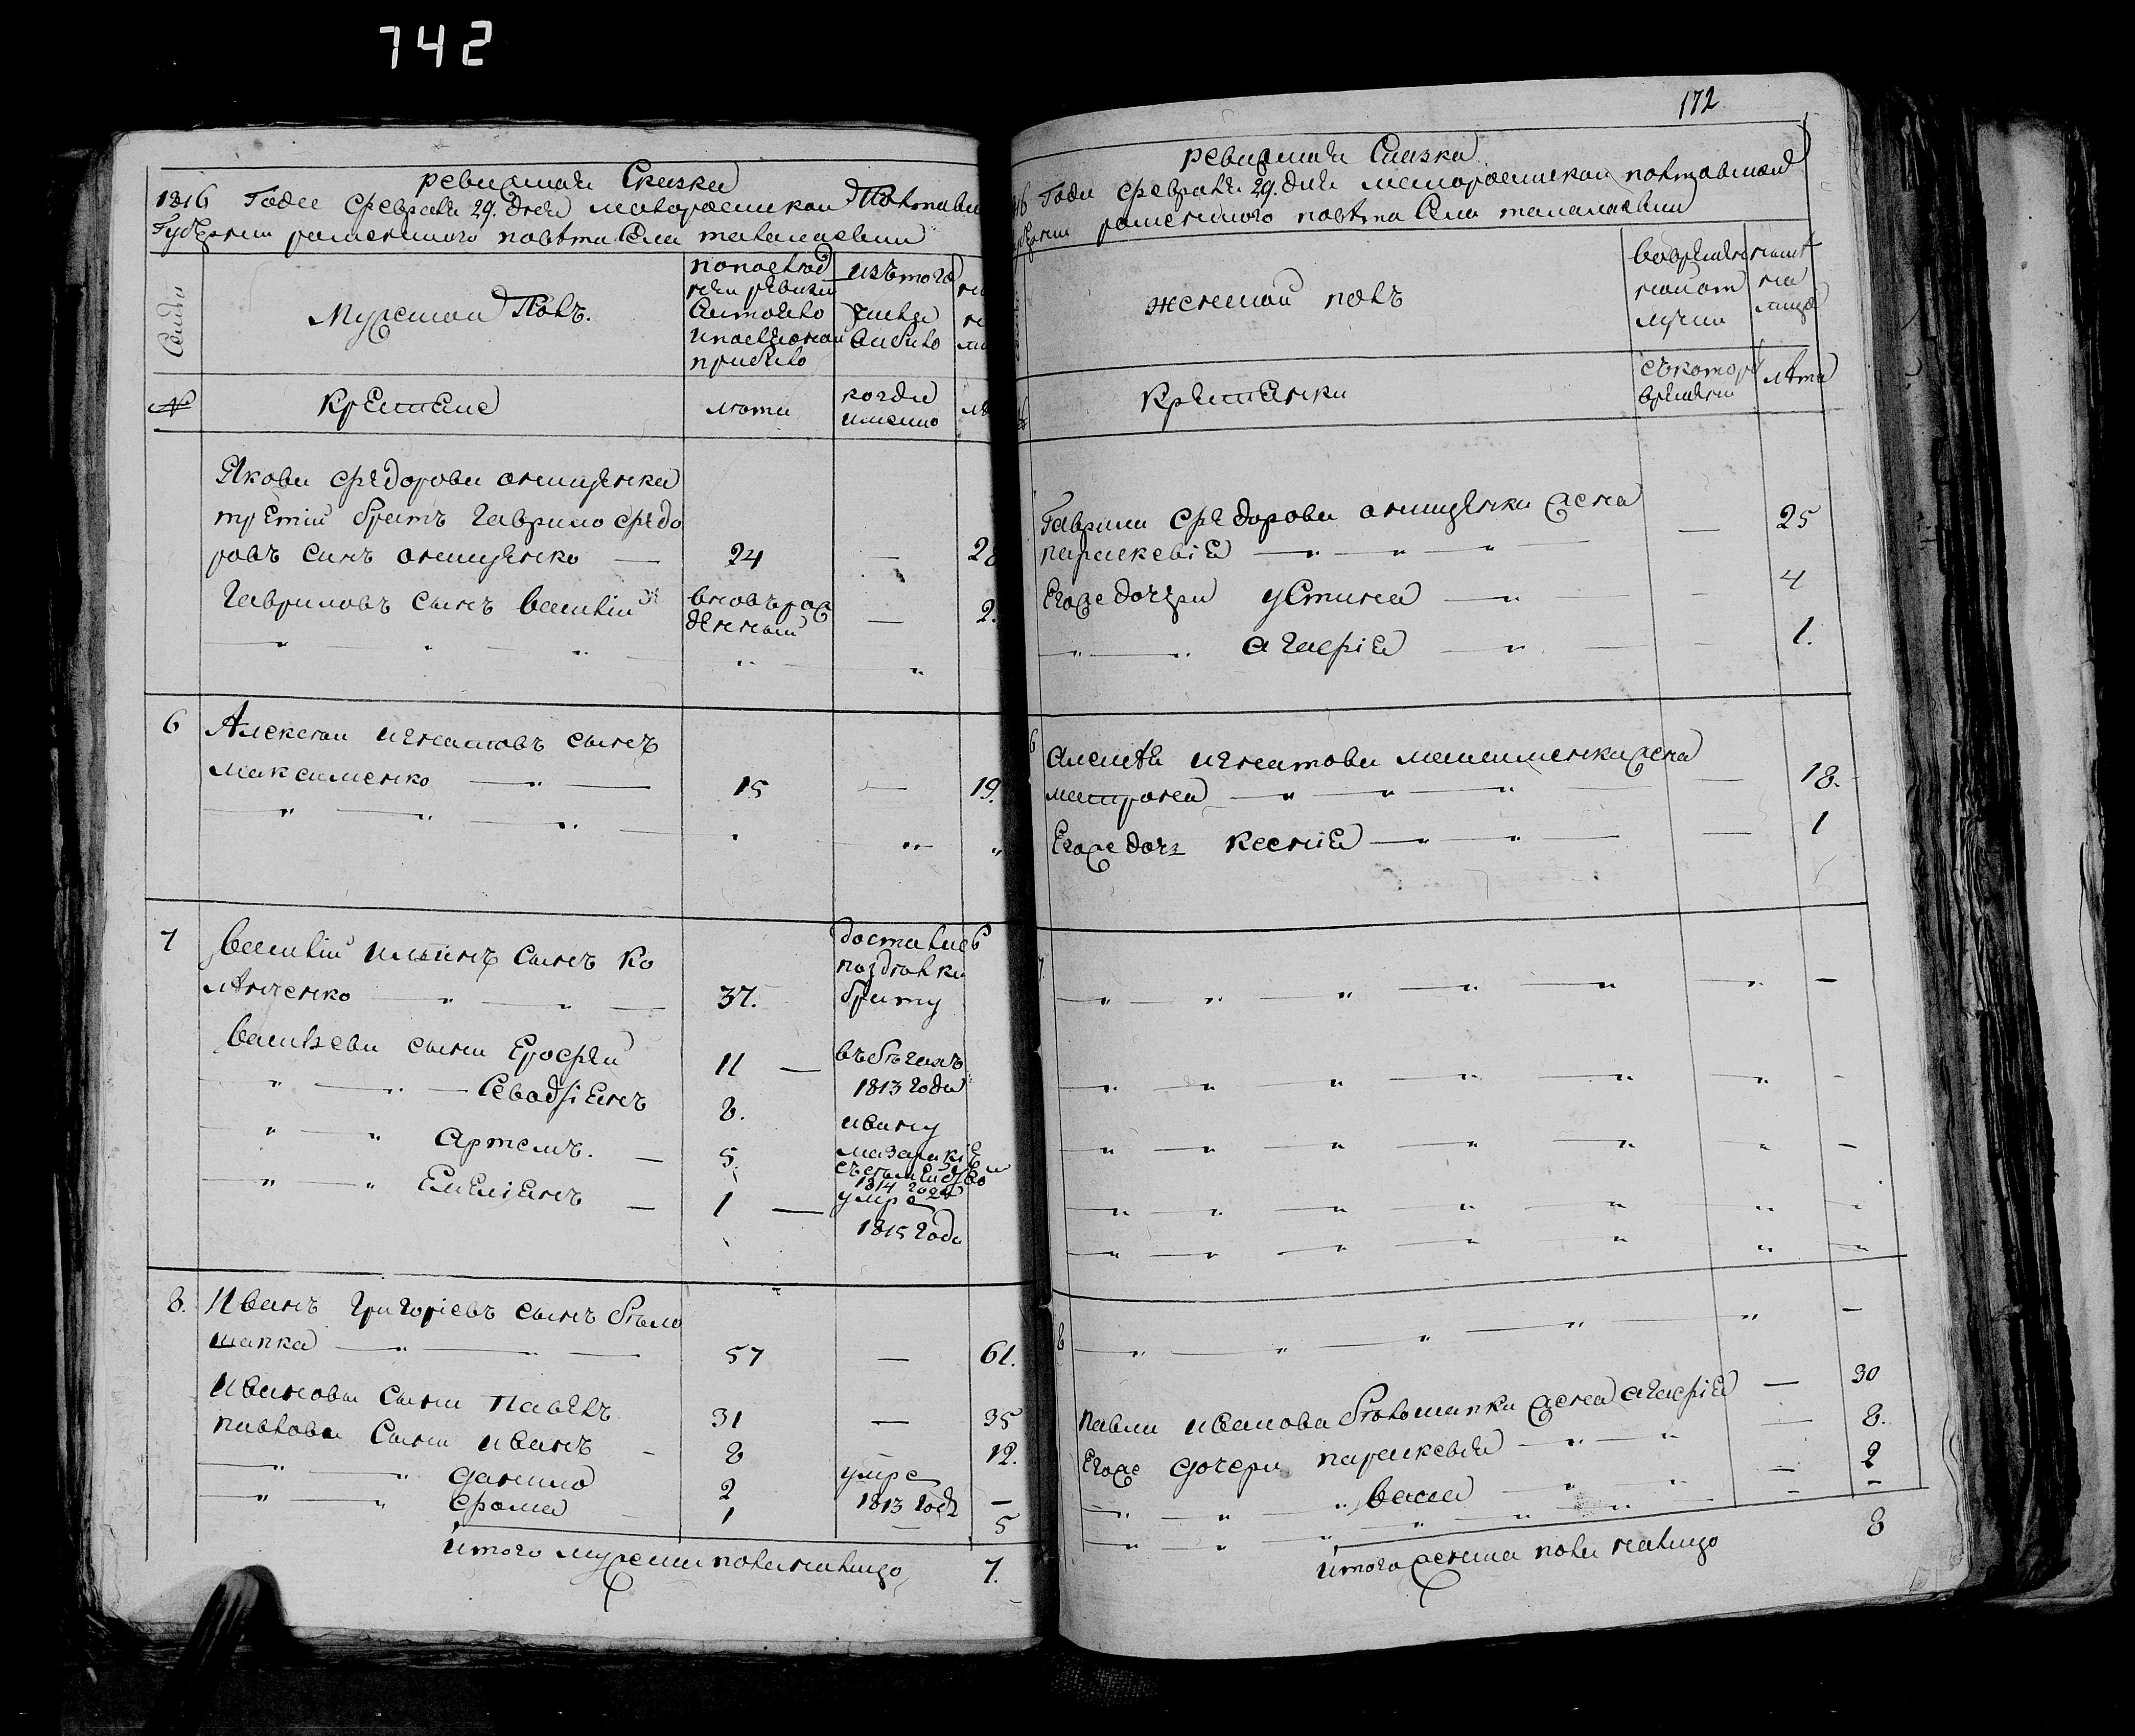 742
ревизская Сказка
1816 Года Февраля 29. дня малороссийской Полтавс
Губернии роменского повѣта Села талалаевки
Семьи
Мужеской Полъ.
попослѣд
ней ревизіи
Состояло
и послѣ оной
прибыло
изътого
числа
выбыло
№
Крестьяне
лѣта
когда
имянно
Якова Федорова онищенка
третій братъ гаврило Федо
ровъ синъ онищенко — 24 — 28
гавриловъ сынъ василій вновърож
денный — 2.
6 Алексѣй игнатовъ сынъ
максименко 15 — 19.
7 василій ильинъ сынъ ко
лѣнченко 37.
досталсь
поздѣлки
брату
васильеви сыни Ерофѣй 11 —
въбѣгахъ
1813 года
Севадсіянъ 8.
ивану
Артемъ. — 5.
1814 года
Емеліянъ — 1 —
умре
1815 года
8. Иванъ григоріевъ сынъ бѣло
шапка 57 — 61.
Иванови сыни Павелъ 31 — 35
павлови сыни иванъ 8 — 12.
данило 2 умре
1813 года —
фома 1 — 5
итого мужеска пола наличо 7.
172
ревизская Сказка
16 Года Февраля 29. дня малороссийской полтавской
губернии роменского повѣта Села талалаевки
женской полъ
вовременной
отлучки
нынѣ
на
лицо
Крестьянки
съкоторого
времени
лѣта
Гаврила Федорова онищенка жена
параскевія — 25
Егоже дочери устиня — 4
агафія — 1.
6 Алексѣя игнатова максименка жена
матрона — 18.
Егоже дочь ксенія — 1
7.
8
павла иванова бѣлошапки жена агафія — 30
Егоже дочери параскевія — 8.
васса — 2
итого женска пола налицо 8